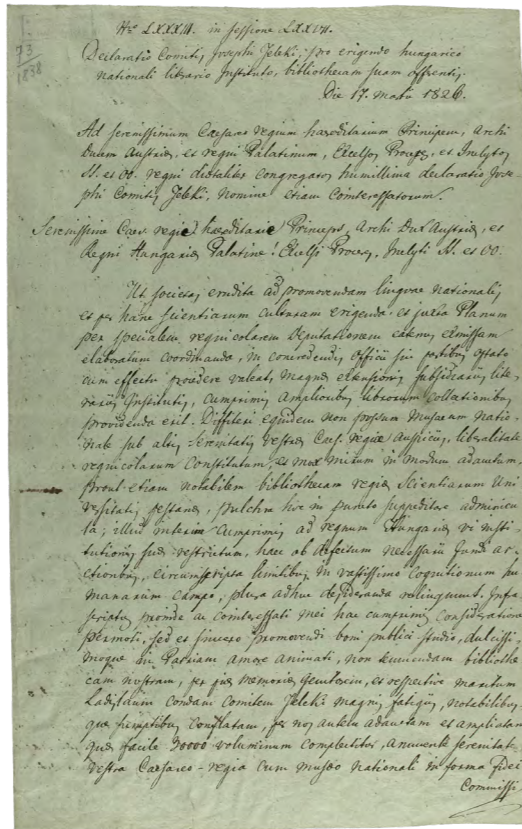 73
1838
Nro LXXXIII. in sessione LXXVII.
Declaratio Comitis Josephi Teleki, pro erigendo hungarico
nationali literario Instituto, bibliothecam suam offerentis,
Die 17. martii 1826.
Ad Serenissimum Caesareo regium haereditarium Principem, Archi
Ducem Austriae, et regni Palatinum, Excelsos Proceres, et Inclytos
SS. et OO. regni diaetaliter congregatos humillima declaratio Jose-
phi Comitis Teleki, nomine etiam Cointeressatorum.
Serenissime Caes. regie haereditarie Princeps, Archi Dux Austriae, et
Regni Hungariae Palatine! Excelsi Proceres, Inclyti SS. et OO.
Ut societas erudita ad promovendam linguae nationalis,
et per hanc scientiarum culturam erigenda et juxta Planum
per specialem regnicolarem Deputationem eatenus exmissam
elaboratum coordinanda, in concredendis officii sui partibus optato
cum effectu procedere valeat, magnae extensionis subsidiariis lite-
rariis Institutis, cumprimis amplioribus librorum Collationibus
providenda erit. Diffiteri equidem non possum Musaeum Natio-
nale sub aliis Serenitatis Vestrae Caes. regiae Auspiciis, liberalitate
regnicolarum Constitutum, et mox mirum in modum adauctum,
prout etiam notabilem bibliothecam regiae Scientiarum Uni
versitatis pestanae, pulchra hoc in puncto suppeditare adminicu
la; illud interim cumprimis ad regnum Hungariae vi insti
tutionis suae restrictum, haec ob defectum necessarii fundi ar-
ctioribus circumscripta limitibus, in vastissimo cognitionum hu
manarum campo, plura adhuc desideranda relinquunt. Infra
scriptus proinde ac cointeressati mei hac cumprimis consideratione
permoti, sed et sincero promovendi boni publici studio, dulcissi
moque in Patriam amore animati, non tenuendam bibliothe
cam nostram, per piae memoriae genitorem, et respective maritum
Ladislaum condam comitem Teleki magnis fatigiis, notabilibus
que sumptibus conflatam, per nos autem adauctam et ampliatam
quae facile 30000 voluminum complectitur, annuente Serenitate
Vestra Caesareo-regia cum musaeo nationali in forma fidei
Commissi